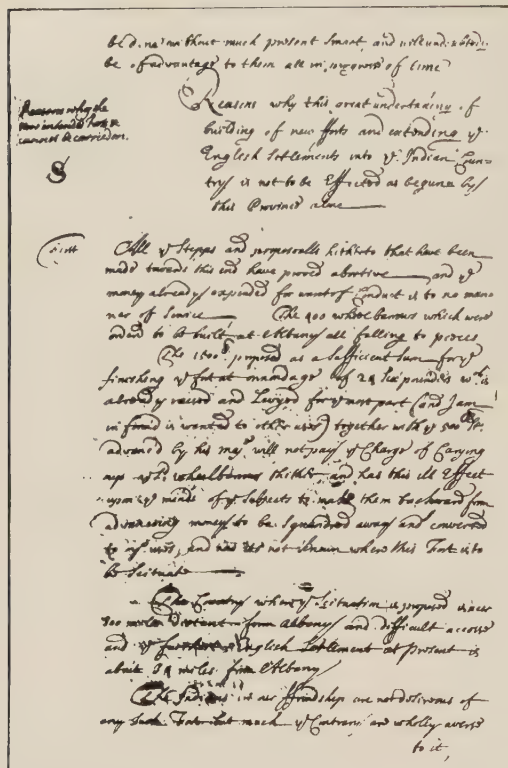 be done without much present Smart and will undoubtedly
be of advantage to them all in process of time
Reasons why the
now intended Forts
cannot be carried on.
Reasons why this great undertaking of
building of new fforts and extending ye
English Settlements into ye Indian Coun-
trys is not to be Effected as begunn by
this Province alone
First
All ye Stepps and proposealls hitherto that have been
made towards this end have proved abortive and ye
money already expended for want of Conduct is to no man-
ner of Service The 400 wheelbarrows which were
ordered to be built at Albany all falling to pieces
The 1500 proposed as a Sufficient Sum for ye
finishing ye fort at onondage of 24 Six pounders wch is
already raised and Levyed for ye most part (and I am
in formd is wanted to other uses) together with ye 500 St.
advanced by his maj will not pay ye Charge of Carying
upp ye wheelbarrows thither and has this ill Effect
upon ye minds of ye Subjects to make them backward from
advanceing money to be Squandred away and converted
to uses, and it is not known where this Fort is to
be Scituate
The Country where ye Scituation is proposed is neer
200 miles Distant from Albany and difficult access
and ye furthest English Settlement at present is
about miles from Albany
The Indians in our ffriendship are not desirous of
any Such Forts but much ye Contrary are wholly averse
to it,